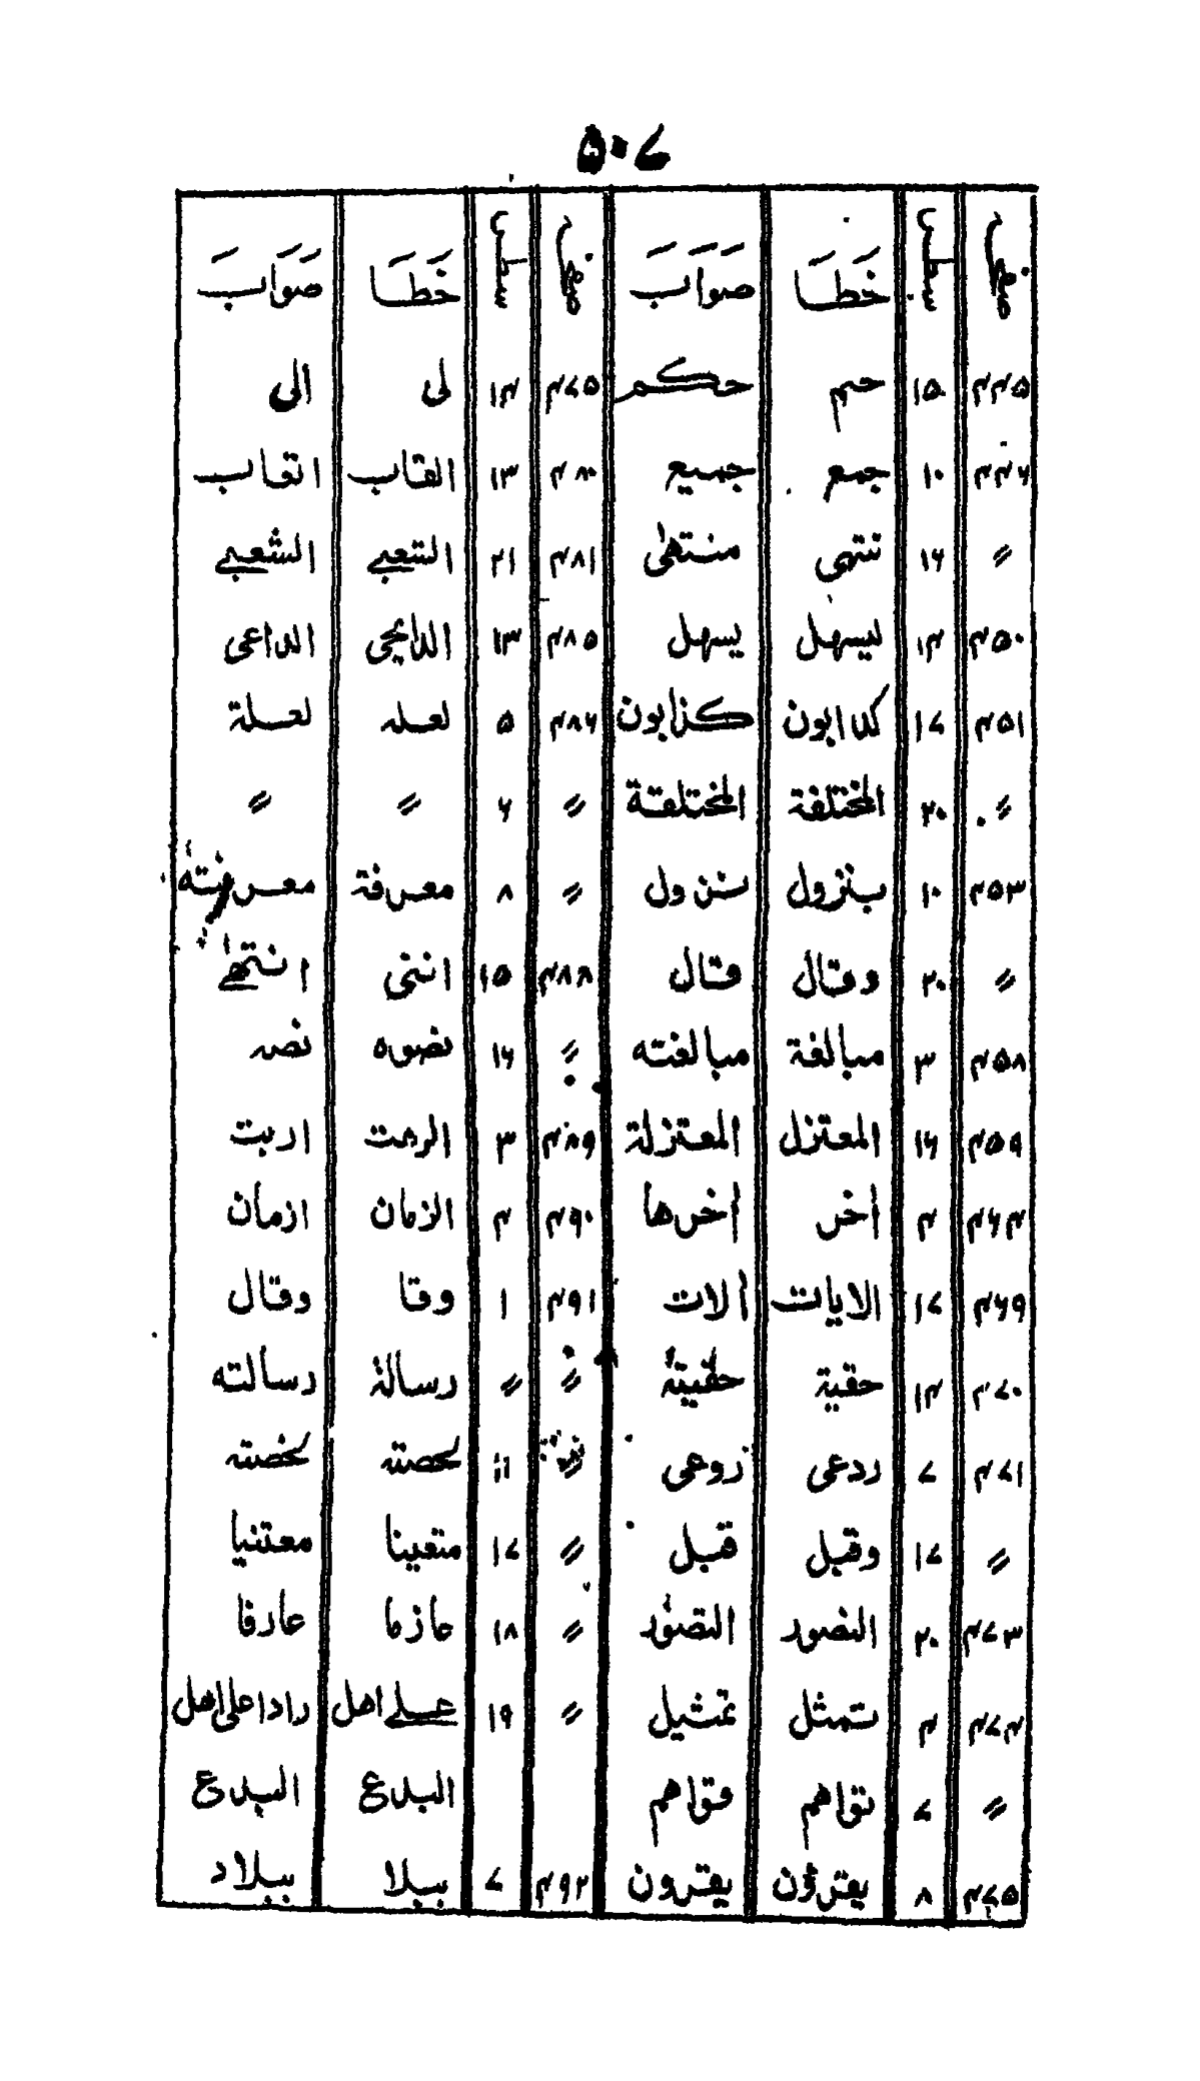 ۵۰۷
صفحہ سطر خَطَا صَوَاب صفحہ سطر خَطَا صَوَاب
۴۴۵ ۱۵ حم حکم ۴۷۵ ۱۴ لی الی
۴۴۶ ۱۰ جمع جمیع ۴۸۰ ۱۳ القاب اتقاب
〃 ۱۶ تنتهی منتهی ۴۸۱ ۲۱ التعبے الشعبے
۴۵۰ ۱۴ لیسهل یسهل ۴۸۵ ۱۳ الداعی
۴۵۱ ۱۷ کدابون کذابون ۴۸۶ ۵ لعله لعلة
〃 ۲۰ المختلفة المختلقة 〃 ۶ 〃 〃
۴۵۳ ۱۰ بنزول نزول 〃 ۸ معرفة معرفته
〃 ۲۰ وقال قال ۴۸۸ ۱۵ انتی انتهے
۴۵۸ ۳ مبالغة مبالغته 〃 ۱۶ نضوه نصه
۴۵۹ ۱۶ المعتزل المعتزلة ۴۸۹ ۳ اربت
۴۶۴ ۴ أخر أخرها ۴۹۰ ۴ الزمان ازمان
۴۶۹ ۱۷ الایات الات ۴۹۱ ۱ وقا وقال
۴۷۰ ۱۴ حقیة حقیقة 〃 〃 رسالة رسالته
۴۷۱ ۷ ردعی زوعی 〃 ۱۱ لحصته لخصته
〃 ۱۷ وقبل قبل 〃 ۱۷ متعینا معتنیا
۴۷۳ ۲۰ النصور التصور 〃 ۱۸ عازما عارفا
۴۷۴ ۴ تمثل تمثیل 〃 ۱۹ علے اهل رادا علی اهل
〃 ۷ تواهم قواهم البدع البدع
۴۷۵ ۸ یفترؤن یفترون ۴۹۲ ۷ ببلا ببلاد